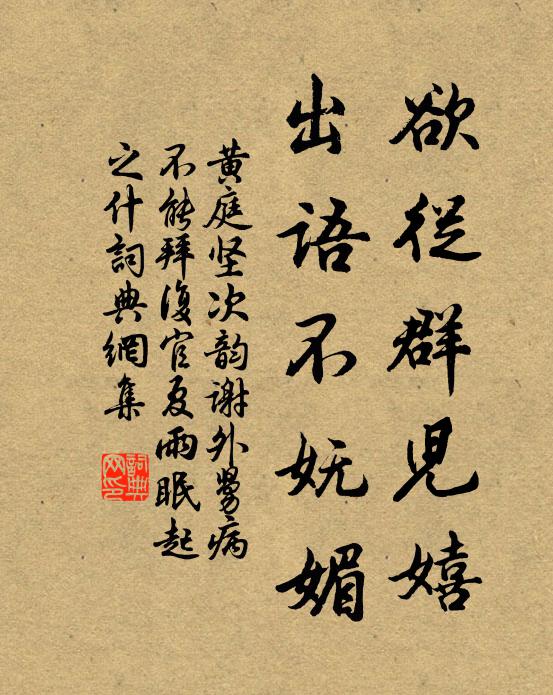 欲從群兒嬉
出語不妩媚
黄庭坚次韵谢外舅病
不能拜復官夏雨眠起
之什詞典網集
詞典
网印